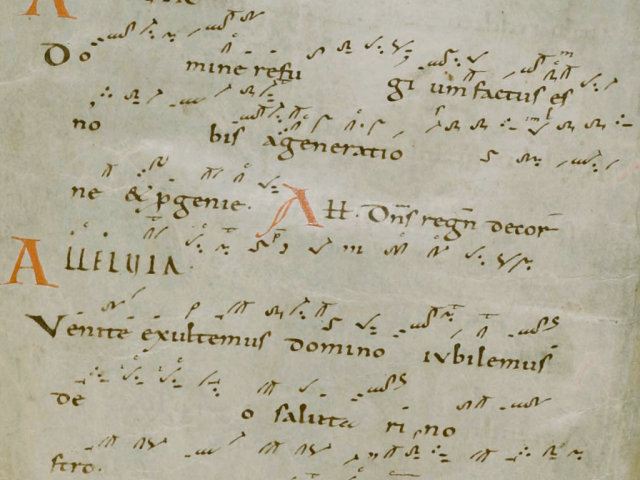 Do mine refu gi um factus es
no bis ageneratio
ne & pgenie. A ƚƚ. Dn̄s regn̄ decor̄
ALLELUIA.
Venite exultemus domino iubilemus
de o saluta ri no
stro.